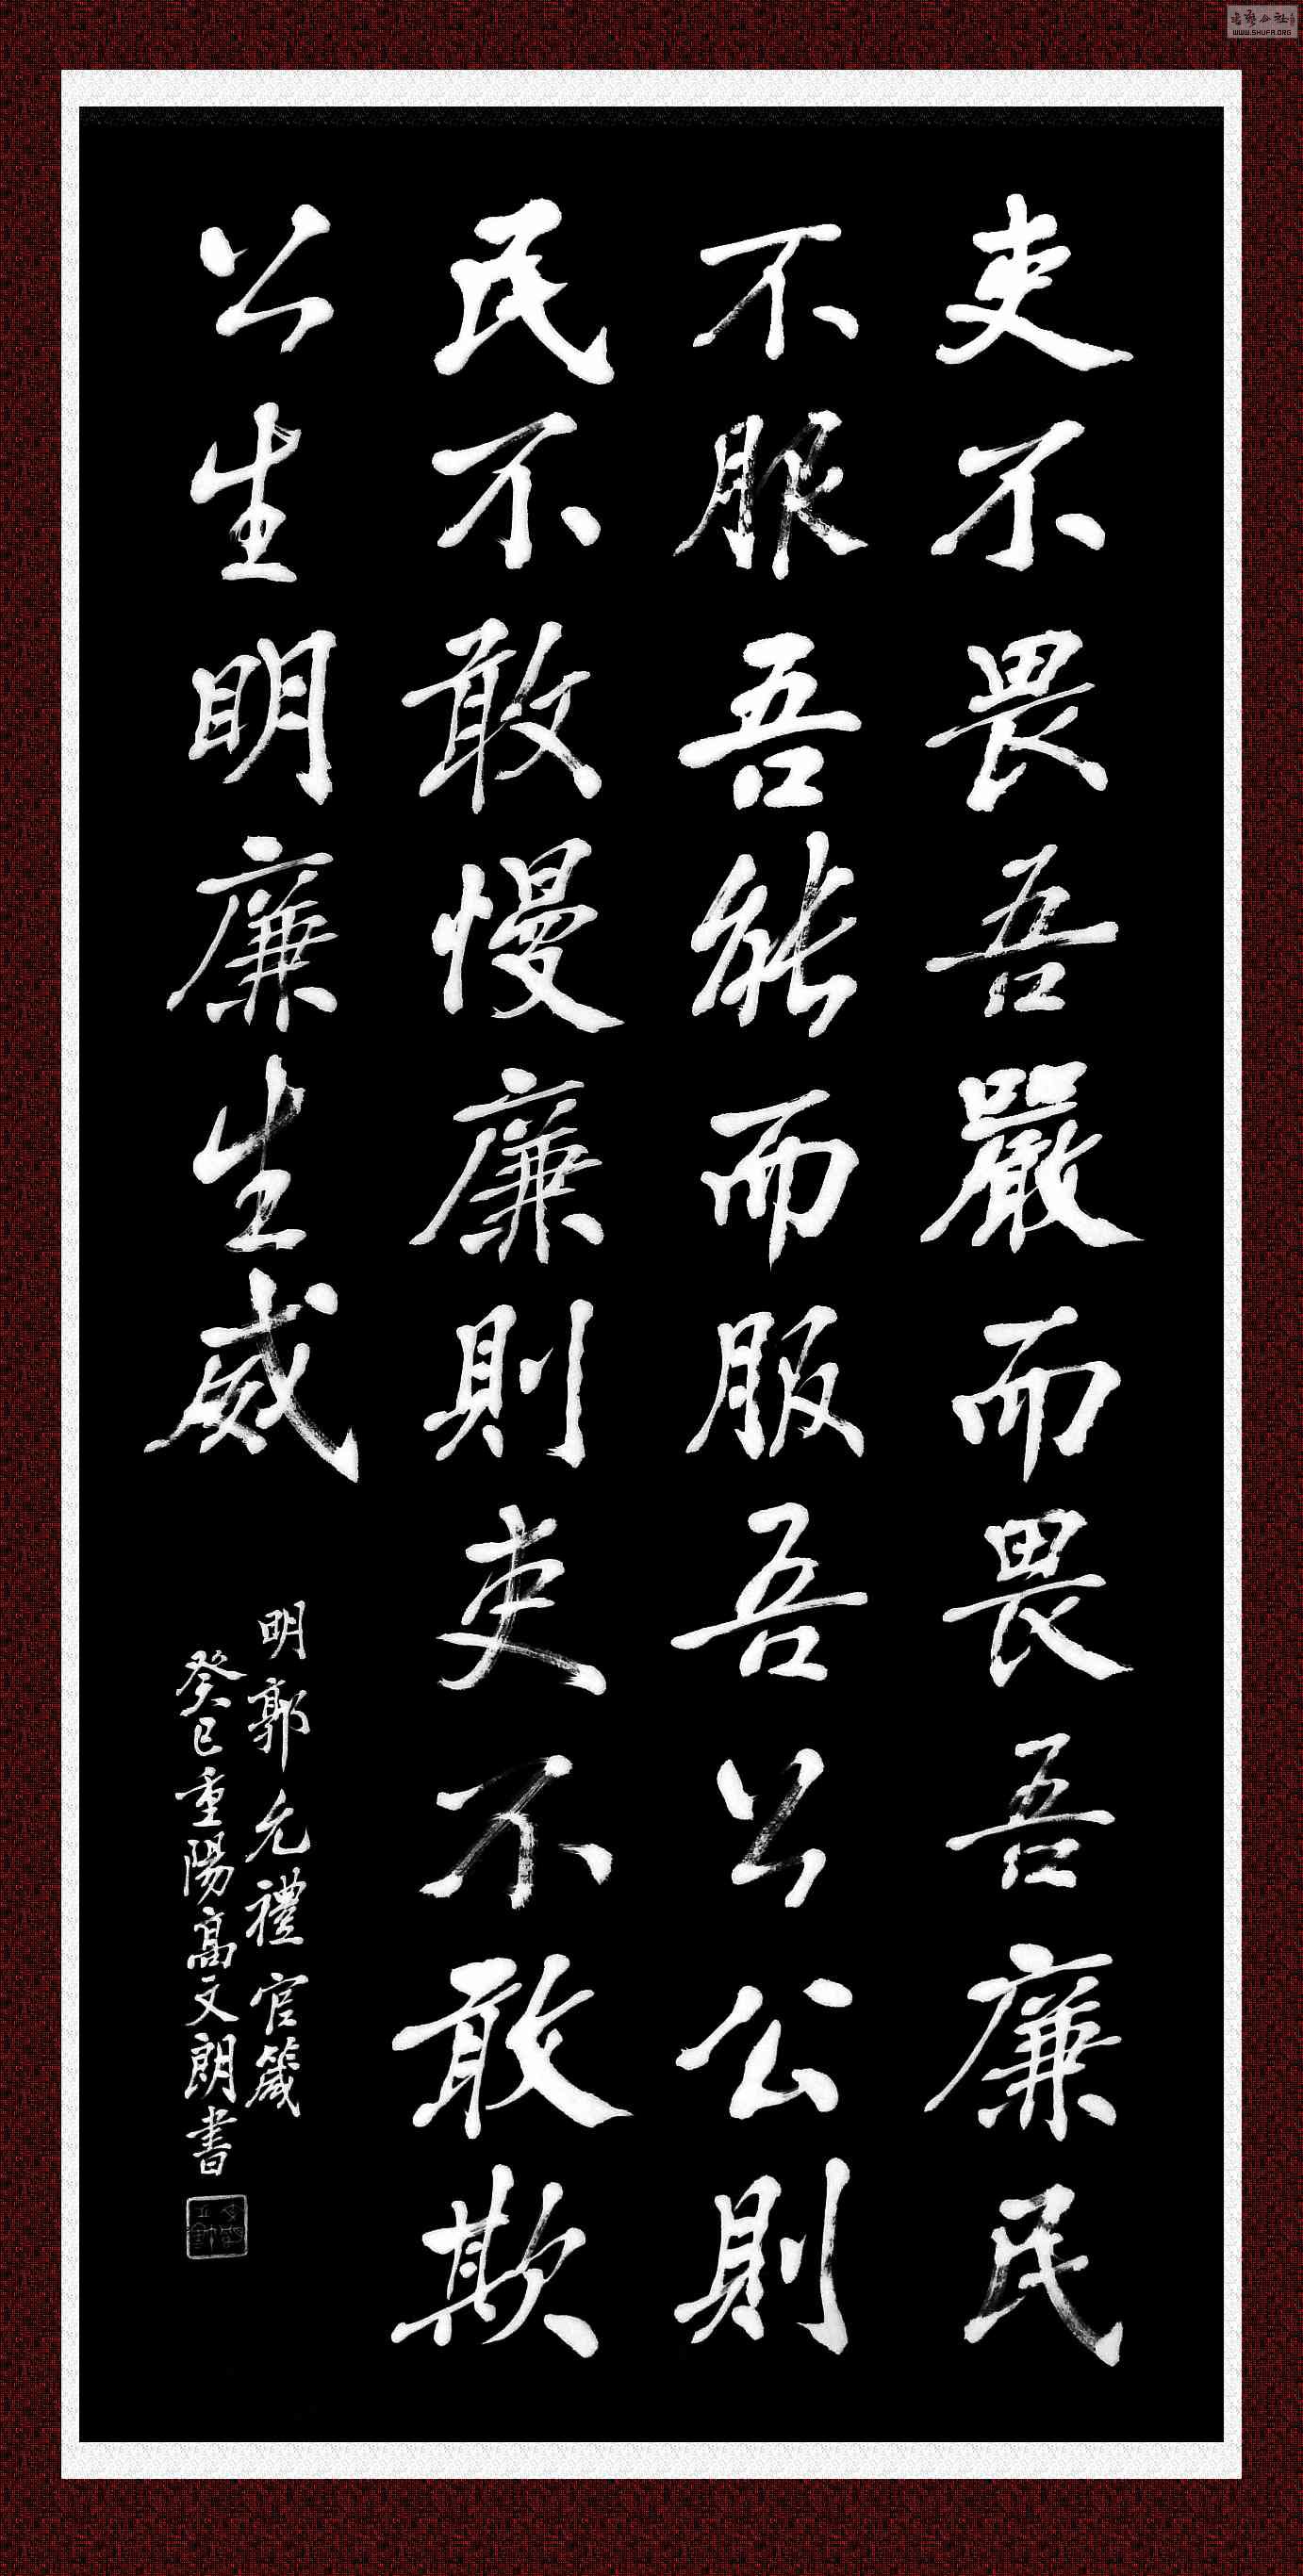 吏不畏吾嚴而畏吾廉民
不服吾能而服吾公公則
民不敢慢廉則吏不敢欺
公生明廉生威
明郭允禮官箴
癸巳重陽高文朗書
書法公社
WWW.SHUFA.ORG